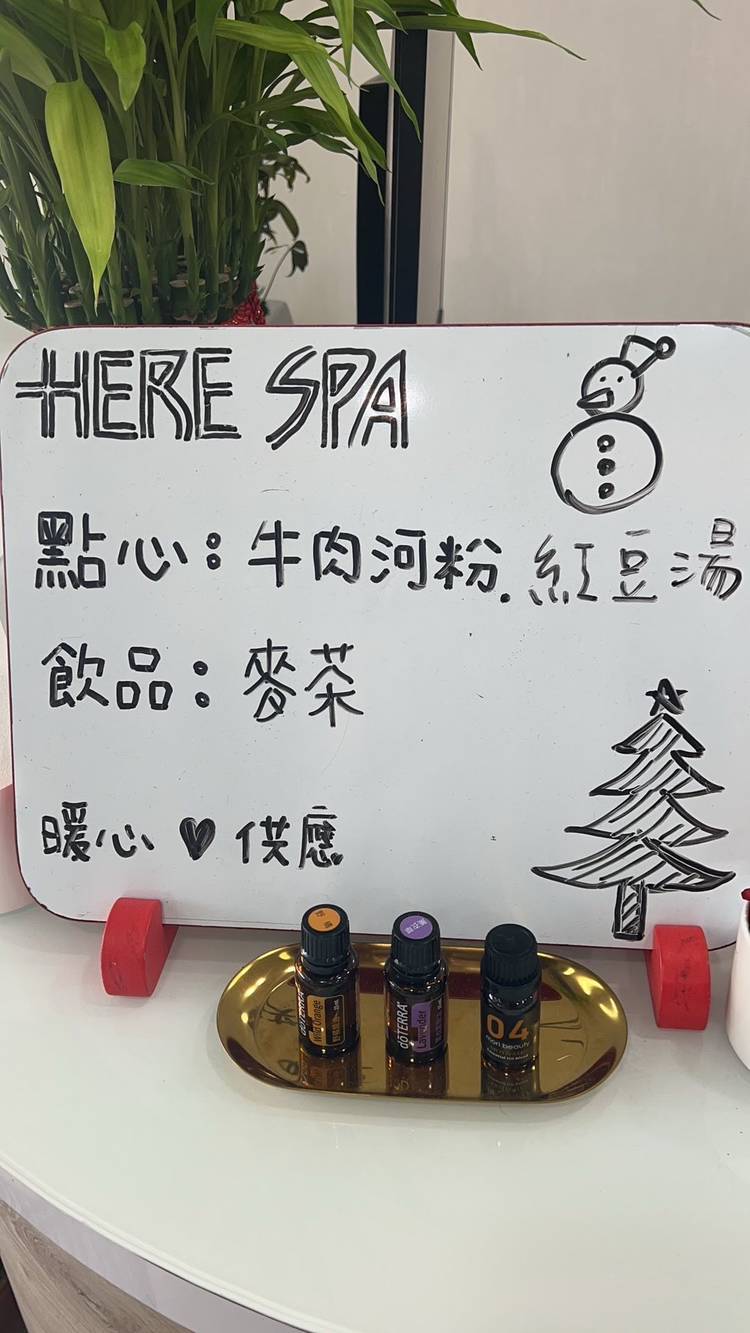 HERE SPA
點心：牛肉河粉.紅豆湯
飲品：麥茶
暖心 ♥ 供應
dōTERRA
Wild Orange
dōTERRA
Lavender
04
mori beauty